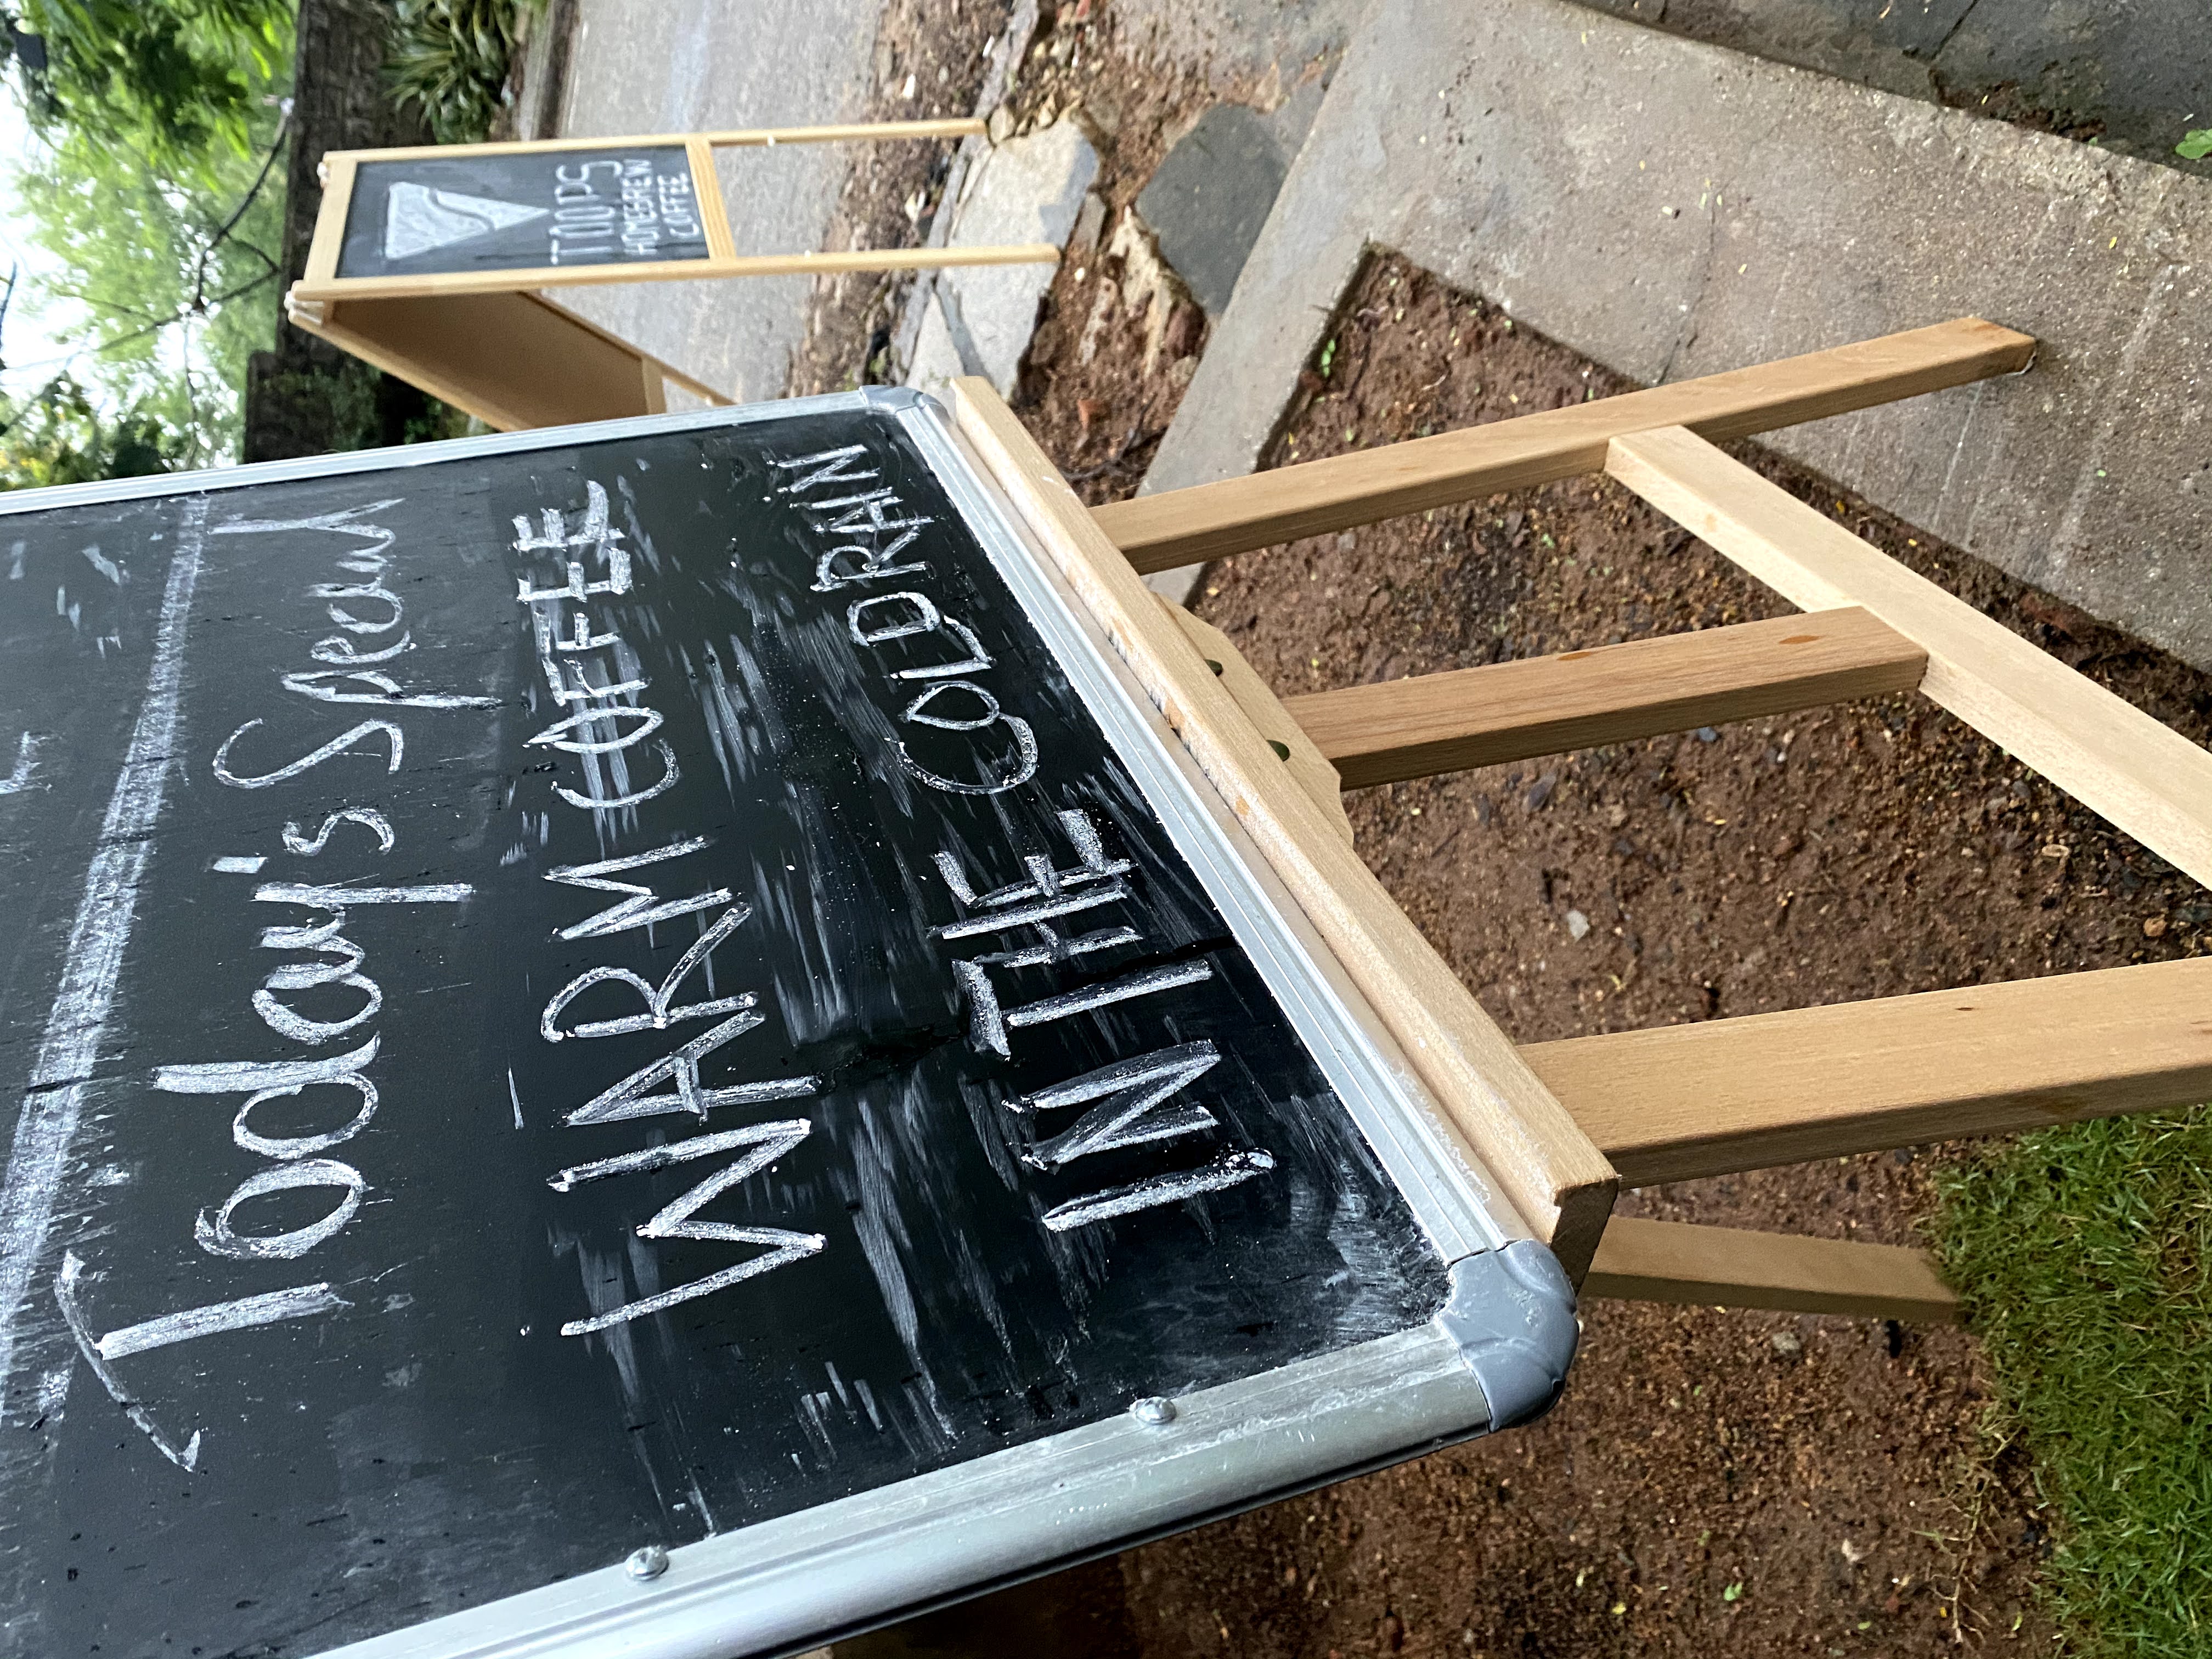 Today's Special
WARM COFFEE
IN THE COLD RAIN
TOOPS
HOMEBREW
COFFEE